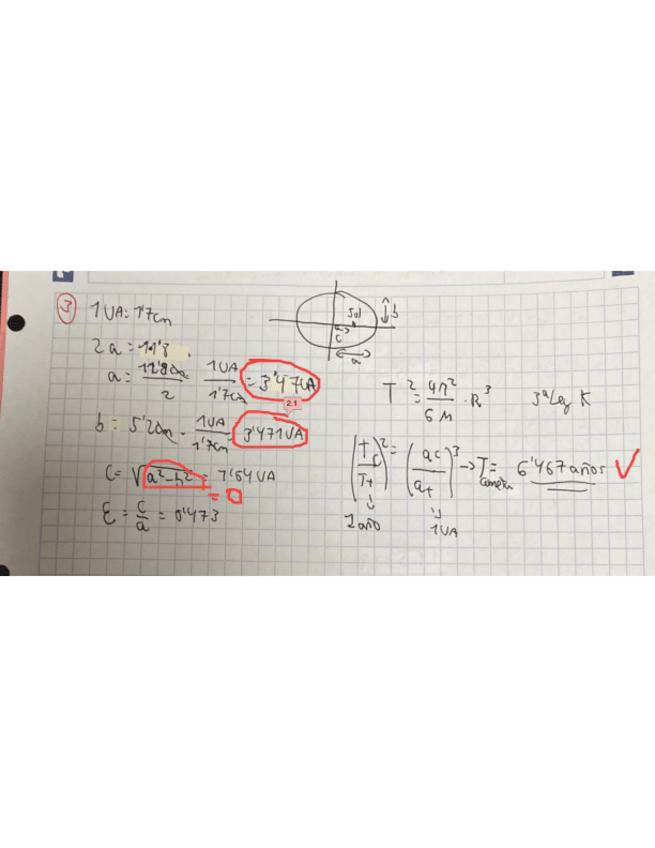 3 1UA: 1'7cm
2a = 11'8
a = 11'8cm / 2 · 1UA / 1'7cm = 3'47UA
2.1
b = 5'2cm · 1UA / 1'7cm = 3'471UA
C = √a²-b² = 1'64UA
= 0
ε = c / a = 0'473
Sol
b
c
a
T² = 4π² / G M · R³ 3ª Ley K
(Tc / Tt)² = (ac / at)³ → T cometa = 6'467 años ✓
1 año 1UA